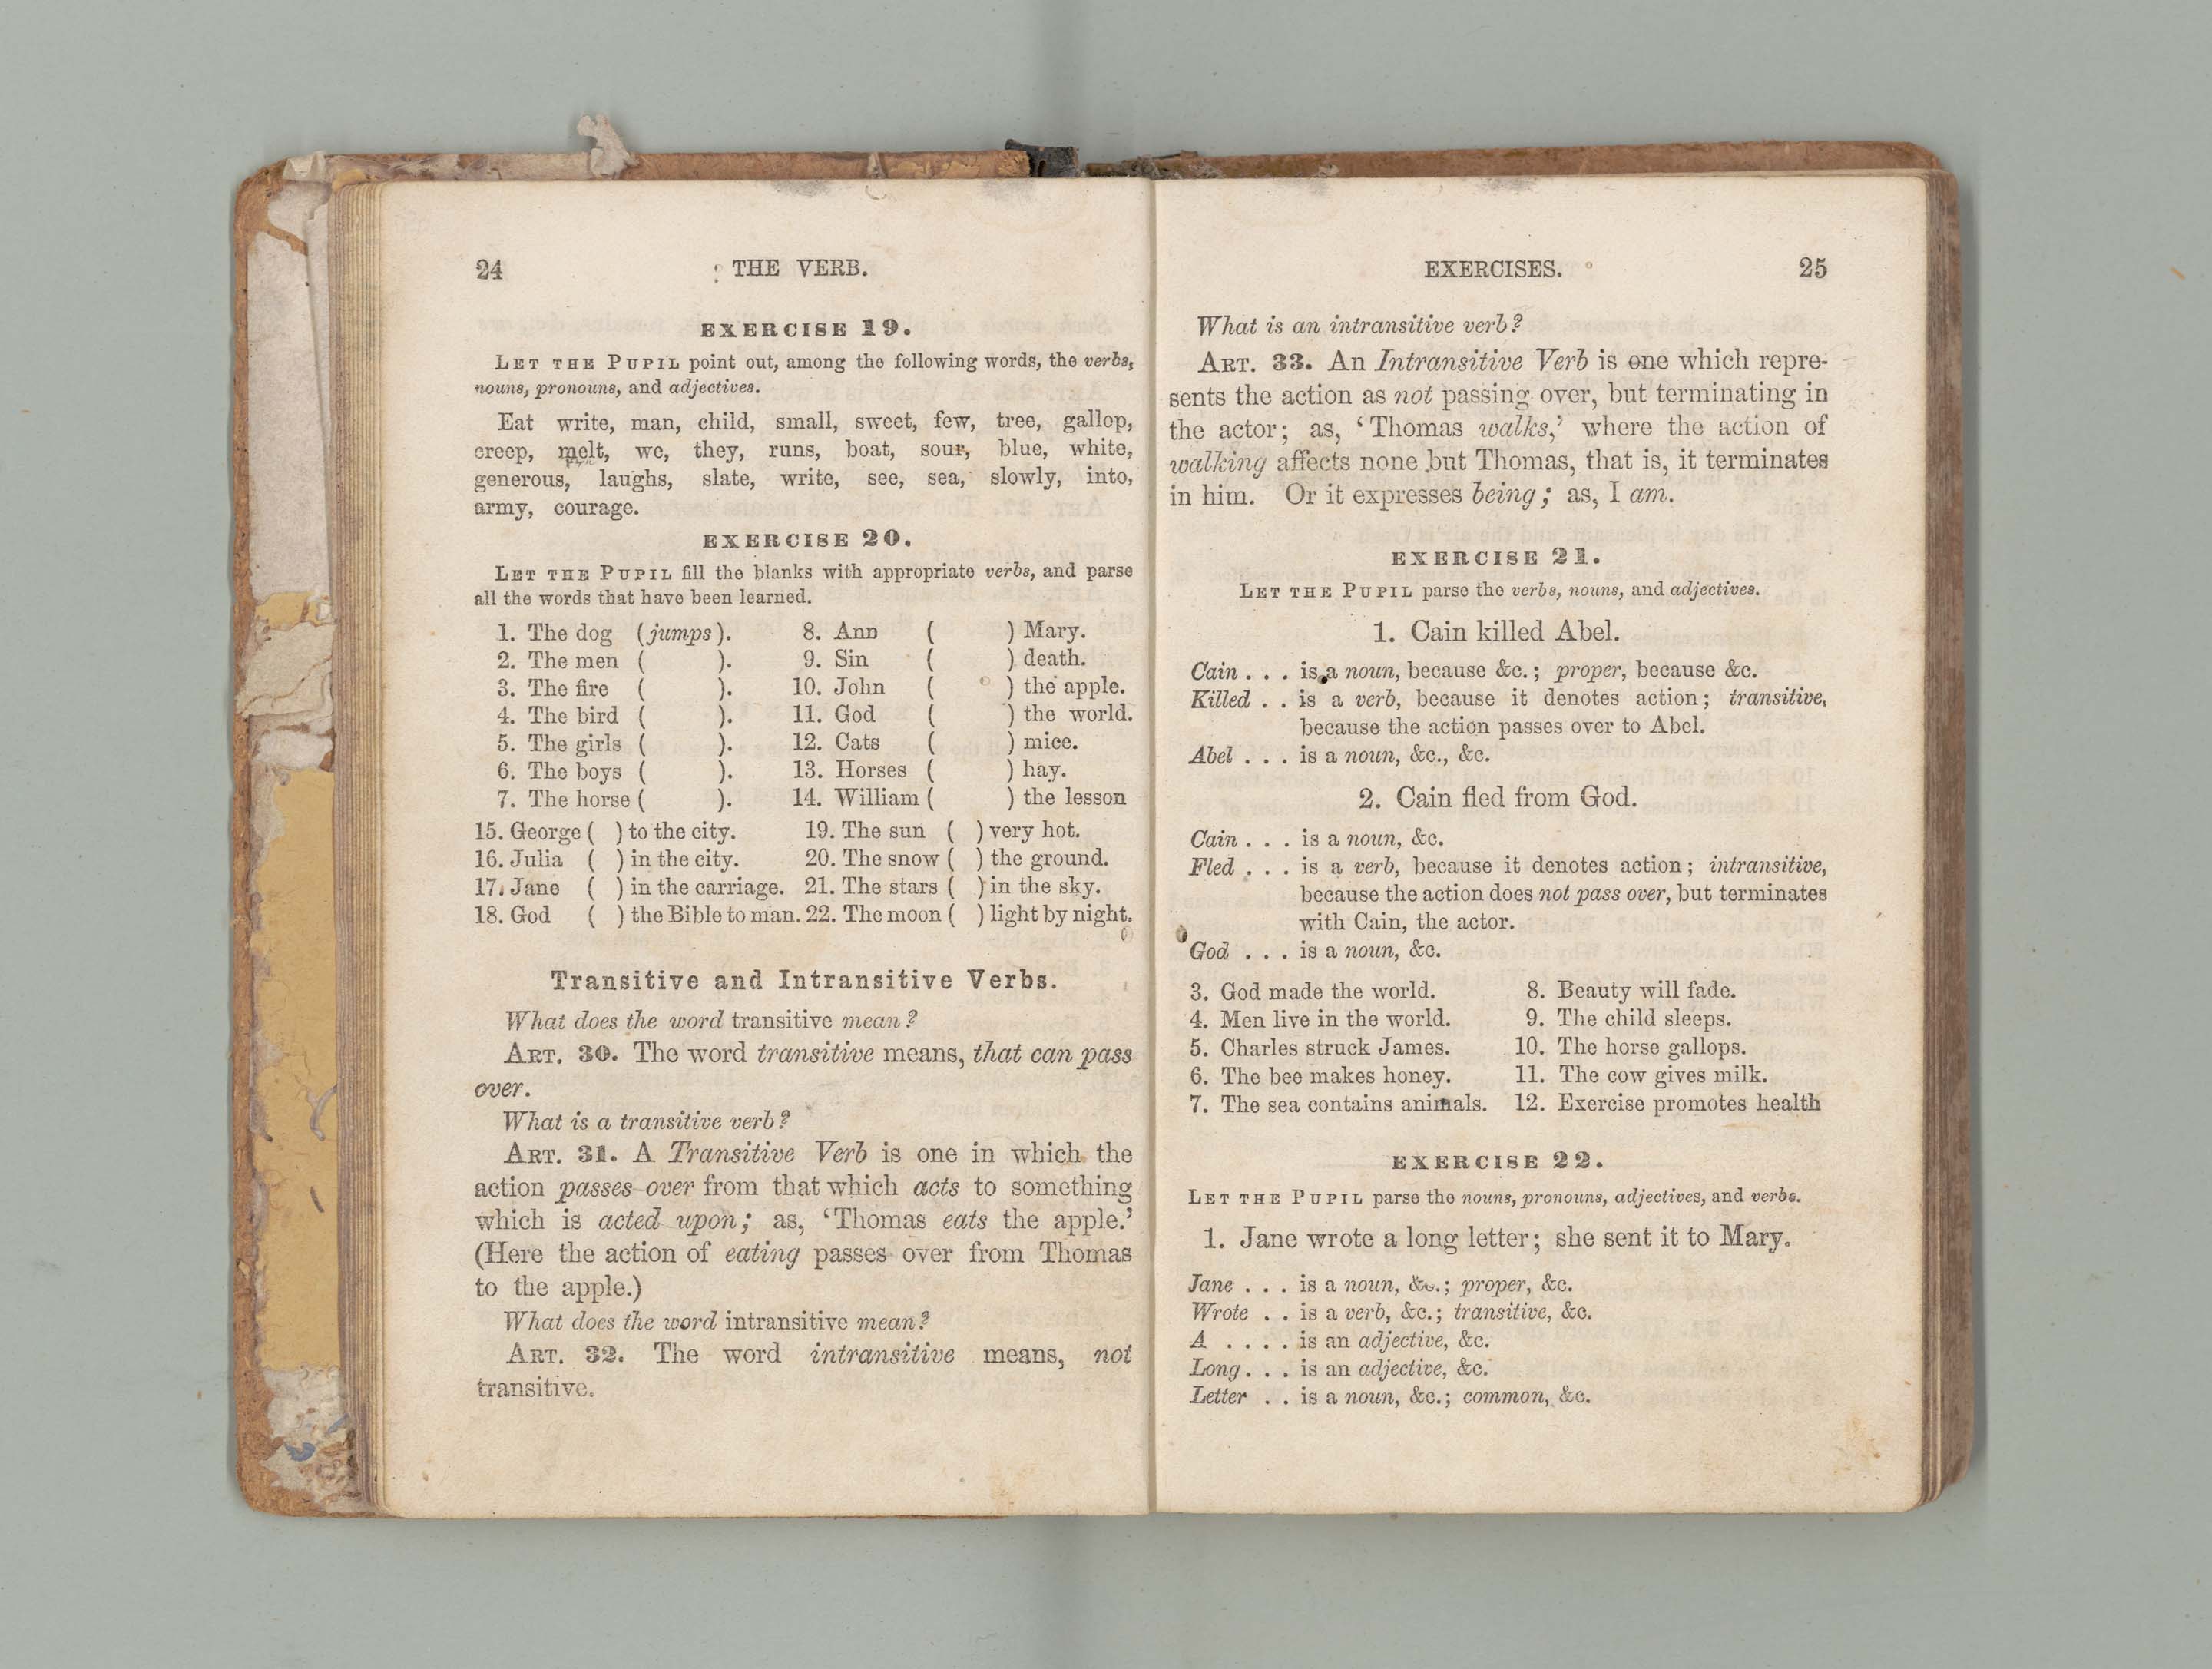 24 THE VERB.
EXERCISE 19.
LET THE PUPIL point out, among the following words, the verbs,
nouns, pronouns, and adjectives.
Eat write, man, child, small, sweet, few, tree, gallop,
creep, melt, we, they, runs, boat, sour, blue, white,
generous, laughs, slate, write, see, sea, slowly, into,
army, courage.
EXERCISE 20.
LET THE PUPIL fill the blanks with appropriate verbs, and parse
all the words that have been learned.
1. The dog (jumps). 8. Ann ( ) Mary.
2. The men ( ). 9. Sin ( ) death.
3. The fire ( ). 10. John ( ) the apple.
4. The bird ( ). 11. God ( ) the world.
5. The girls ( ). 12. Cats ( ) mice.
6. The boys ( ). 13. Horses ( ) hay.
7. The horse ( ). 14. William ( ) the lesson
15. George ( ) to the city. 19. The sun ( ) very hot.
16. Julia ( ) in the city. 20. The snow ( ) the ground.
17. Jane ( ) in the carriage. 21. The stars ( ) in the sky.
18. God ( ) the Bible to man. 22. The moon ( ) light by night.
Transitive and Intransitive Verbs.
What does the word transitive mean?
ART. 30. The word transitive means, that can pass
over.
What is a transitive verb?
ART. 31. A Transitive Verb is one in which the
action passes over from that which acts to something
which is acted upon; as, ‘Thomas eats the apple.’
(Here the action of eating passes over from Thomas
to the apple.)
What does the word intransitive mean?
ART. 32. The word intransitive means, not
transitive.
EXERCISES. 25
What is an intransitive verb?
ART. 33. An Intransitive Verb is one which repre-
sents the action as not passing over, but terminating in
the actor; as, ‘Thomas walks,’ where the action of
walking affects none but Thomas, that is, it terminates
in him. Or it expresses being; as, I am.
EXERCISE 21.
LET THE PUPIL parse the verbs, nouns, and adjectives.
1. Cain killed Abel.
Cain . . . is a noun, because &c.; proper, because &c.
Killed . . is a verb, because it denotes action; transitive,
because the action passes over to Abel.
Abel . . . is a noun, &c., &c.
2. Cain fled from God.
Cain . . . is a noun, &c.
Fled . . . is a verb, because it denotes action; intransitive,
because the action does not pass over, but terminates
with Cain, the actor.
God . . . is a noun, &c.
3. God made the world. 8. Beauty will fade.
4. Men live in the world. 9. The child sleeps.
5. Charles struck James. 10. The horse gallops.
6. The bee makes honey. 11. The cow gives milk.
7. The sea contains animals. 12. Exercise promotes health
EXERCISE 22.
LET THE PUPIL parse the nouns, pronouns, adjectives, and verbs.
1. Jane wrote a long letter; she sent it to Mary.
Jane . . . is a noun, &c.; proper, &c.
Wrote . . is a verb, &c.; transitive, &c.
A . . . . is an adjective, &c.
Long . . . is an adjective, &c.
Letter . . is a noun, &c.; common, &c.